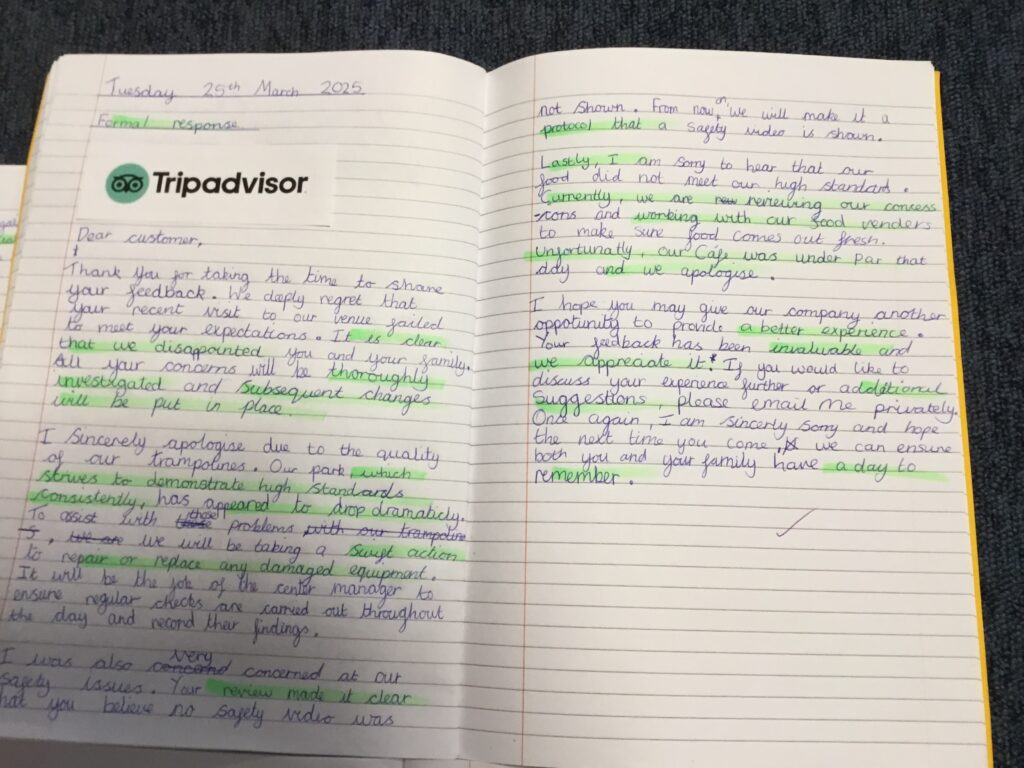 Tuesday 25th March 2025
Formal response
Tripadvisor
Dear customer,
Thank you for taking the time to share
your feedback. We deeply regret that
your recent visit to our venue failed
to meet your expectations. It is clear
that we disappointed you and your family.
All your concerns will be thoroughly
investigated and subsequent changes
will be put in place.
I sincerely apologise due to the quality
of our trampolines. Our park, which
strives to demonstrate high standards
consistently, has appeared to drop dramaticly.
To assist with those problems with our trampoline
s, we are we will be taking a swift action
to repair or replace any damaged equipment.
It will be the job of the center manager to
ensure regular checks are carried out throughout
the day and record their findings.
I was also very concerned at our
safety issues. Your review made it clear
that you believe no safety video was
not shown. From now on, we will make it a
protocol that a safety video is shown.
Lastly, I am sorry to hear that our
food did not meet our high standard.
Currently, we are reviewing our concess
-ions and working with our food venders
to make sure food comes out fresh.
Unfortunatly, our Cáfe was under par that
day and we apologise.
I hope you may give our company another
oppotunity to provide a better experience.
Your feedback has been invaluable and
we appreciate it! If you would like to
discuss your experience further or additional
suggestions, please email me privately.
Once again, I am sincerly sorry and hope
the next time you come, we can ensure
both you and your family have a day to
remember.